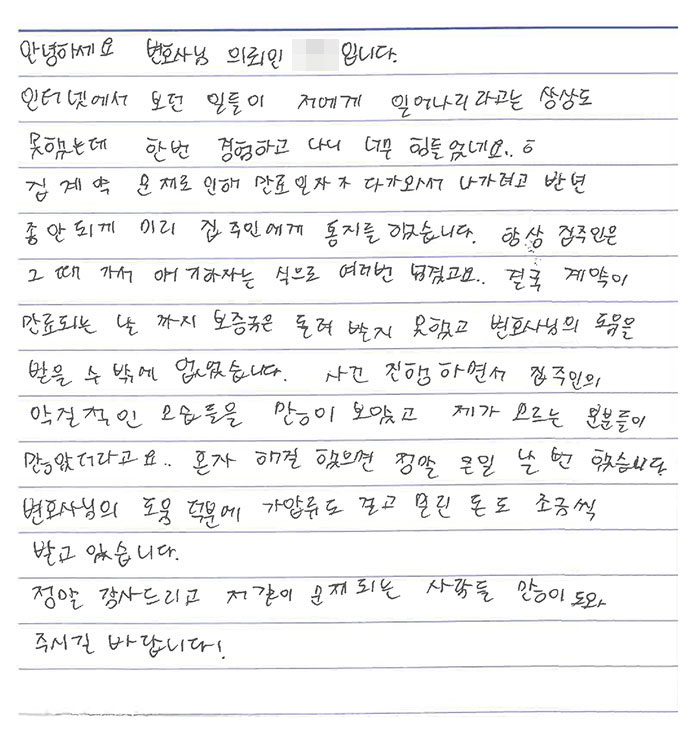 안녕하세요 변호사님 의뢰인 입니다.
인터넷에서 보던 일들이 저에게 일어나리라고는 상상도
못했는데 한번 경험하고 나니 너무 힘들었네요..ㅎ
집 계약 문제로 인해 만료일자가 다가와서 나가려고 반년
동안 되게 미리 집주인에게 통지를 했습니다. 항상 집주인은
그 때 가서 얘기하자는 식으로 여러번 넘겼고요.. 결국 계약이
만료되는 날 까지 보증금은 돌려 받지 못했고 변호사님의 도움을
받을 수 밖에 없었습니다. 사건 진행하면서 집주인의
악질적인 모습들을 많이 보았고 제가 모르는 부분들이
많았더라고요.. 혼자 해결 했으면 정말 큰일 날 번 했습니다
변호사님의 도움 덕분에 가압류도 걸고 밀린 돈도 조금씩
받고 있습니다.
정말 감사드리고 저같이 문제되는 사람들 많이 도와
주시길 바랍니다!